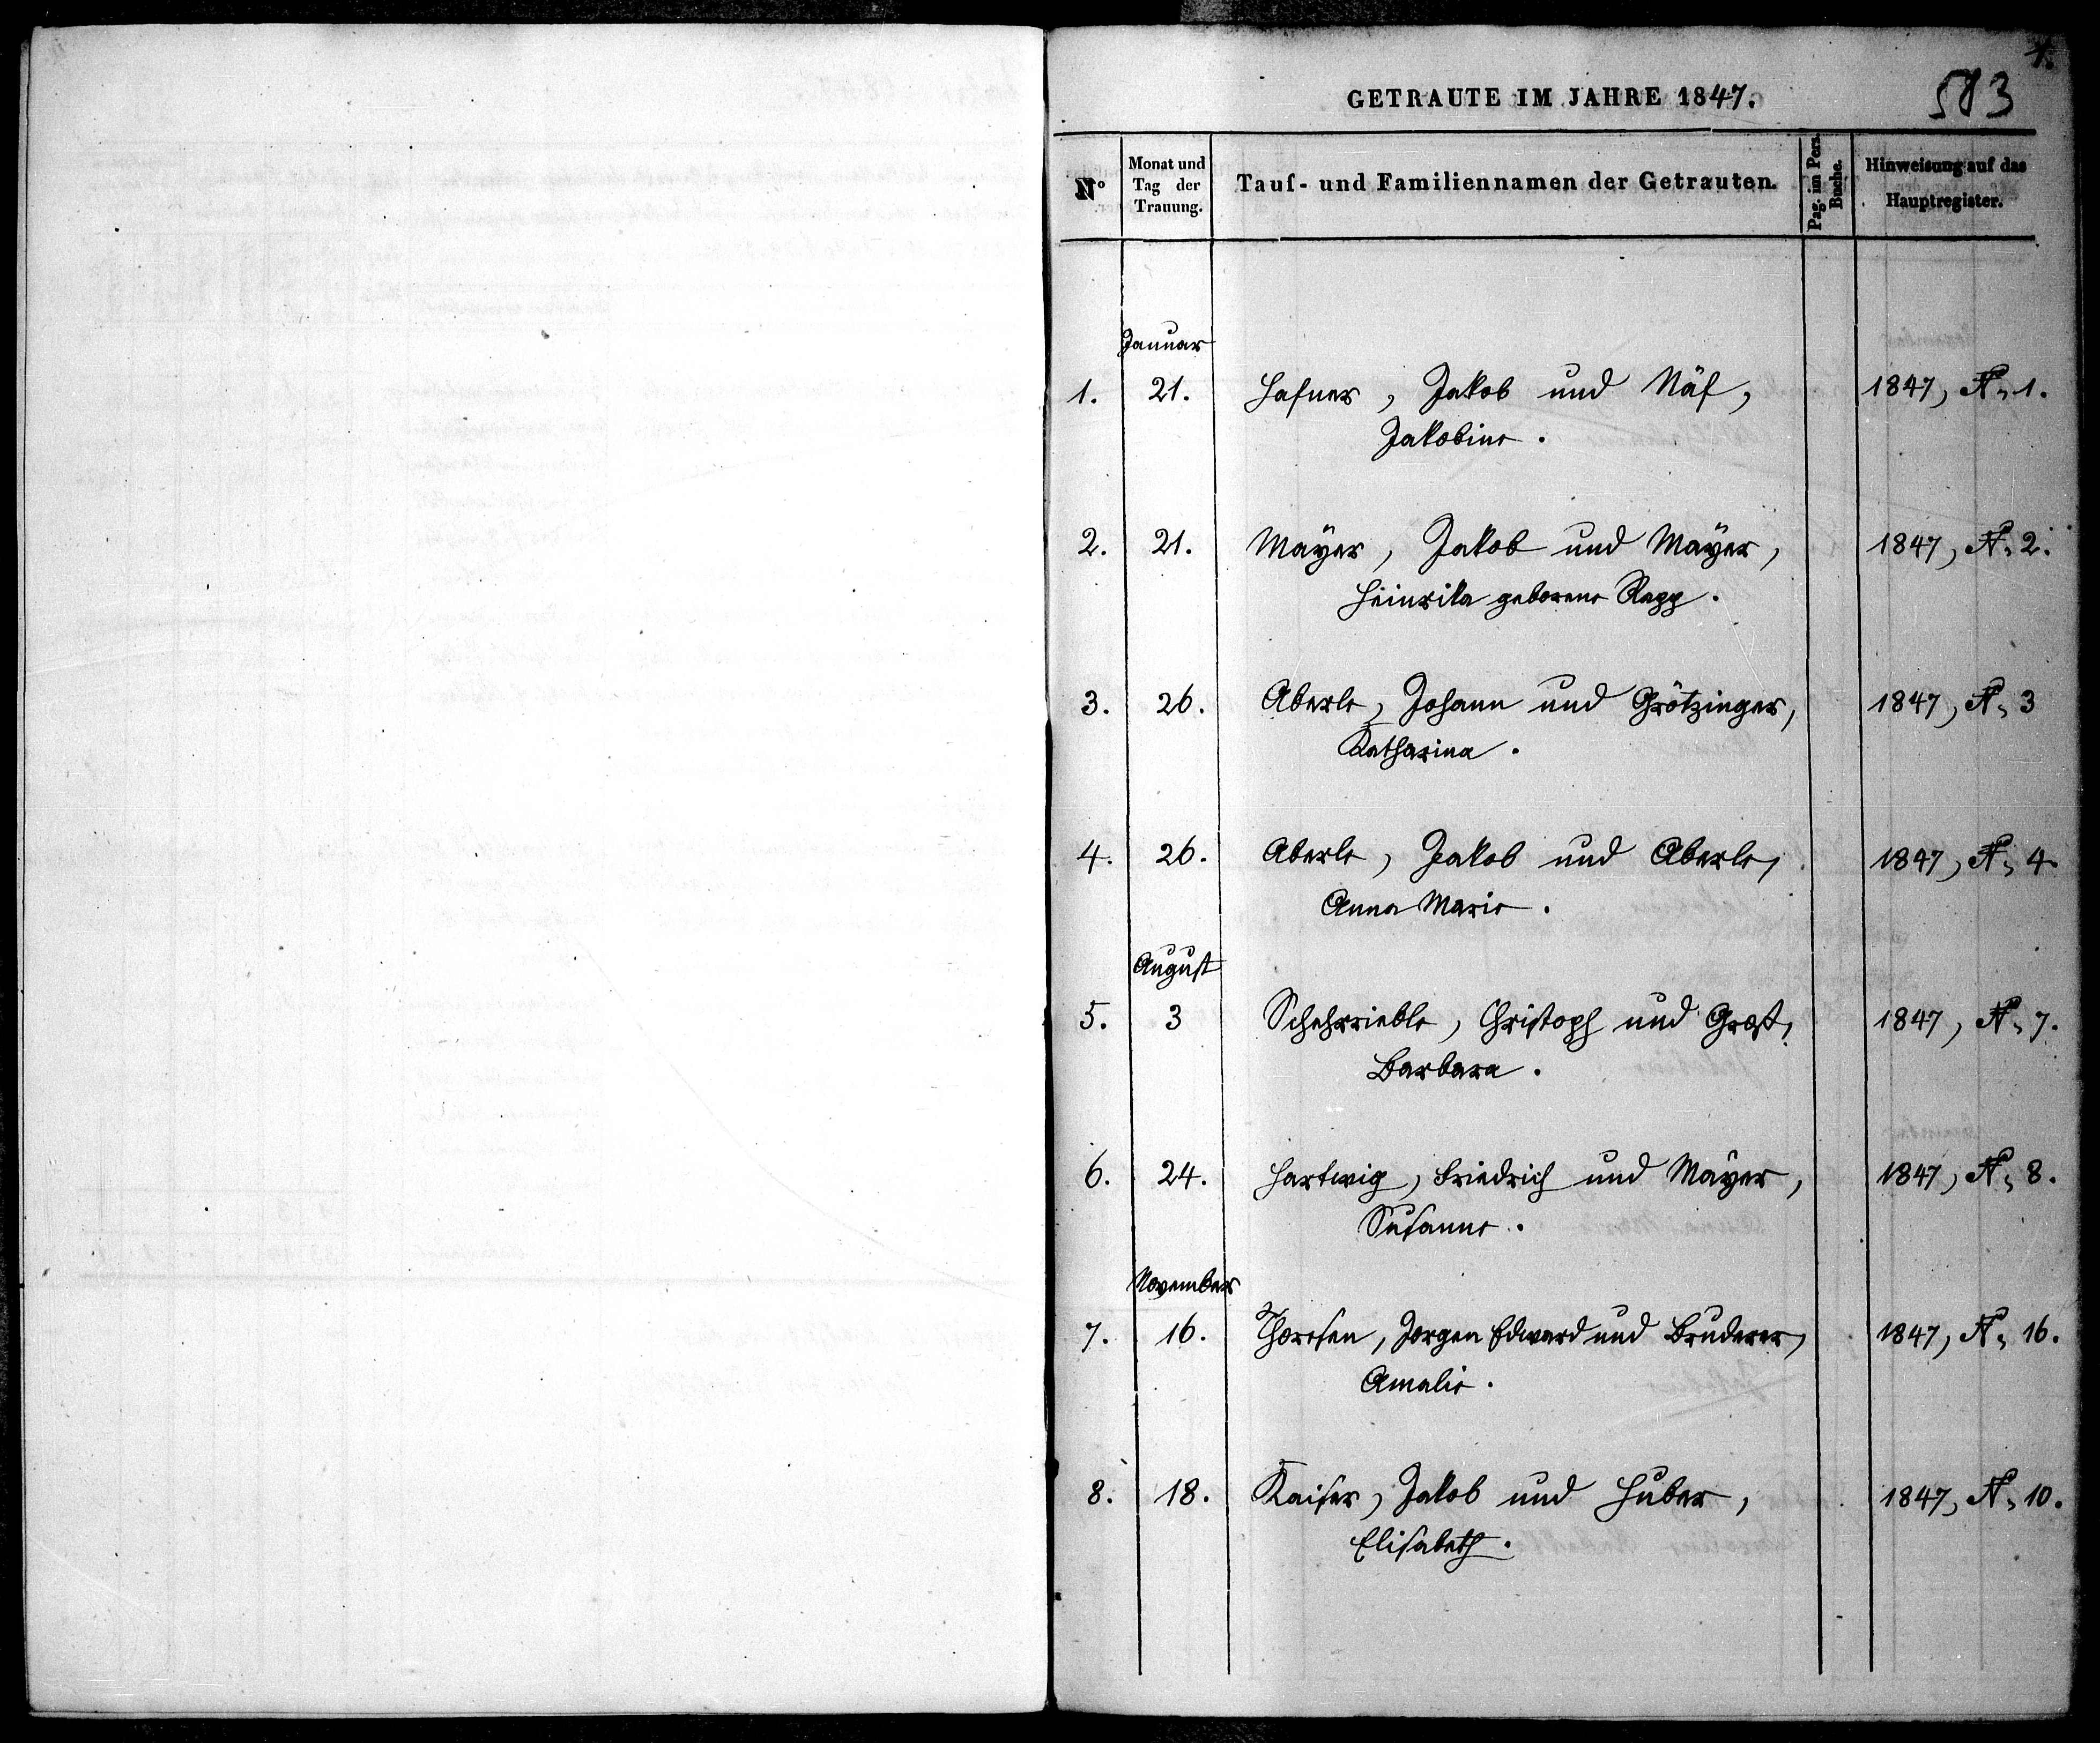 1.
583
GETRAUTE IM JAHRE 1847.
N° Monat und Tag der Trauung. Tauf- und Familiennamen der Getrauten. Pag. im Pers. Buche. Hinweisung auf das Hauptregister.
Januar
1. 21. Hafner, Jakob und Näf, 1847, N. 1.
Jakobine.
2. 21. Mayer, Jakob und Mayer, 1847, N. 2.
Heinrika geborene Rapp.
3. 26. Aberle, Johann und Grötzinger, 1847, N. 3
Katharina.
4. 26. Aberle, Jakob und Aberle, 1847, N. 4.
Anna Marie.
August
5. 3 Schehrieble, Christoph und 1847, N. 7.
Barbara.
6. 24. Hartwig, Friedrich und Mayer, 1847, N. 8.
Susanne.
November
7. 16. Thoresen, Jorgen Edward und Bruderer, 1847, N. 16.
Amalie.
8. 18. Kaiser, Jakob und Huber, 1847, N. 10.
Elisabeth.